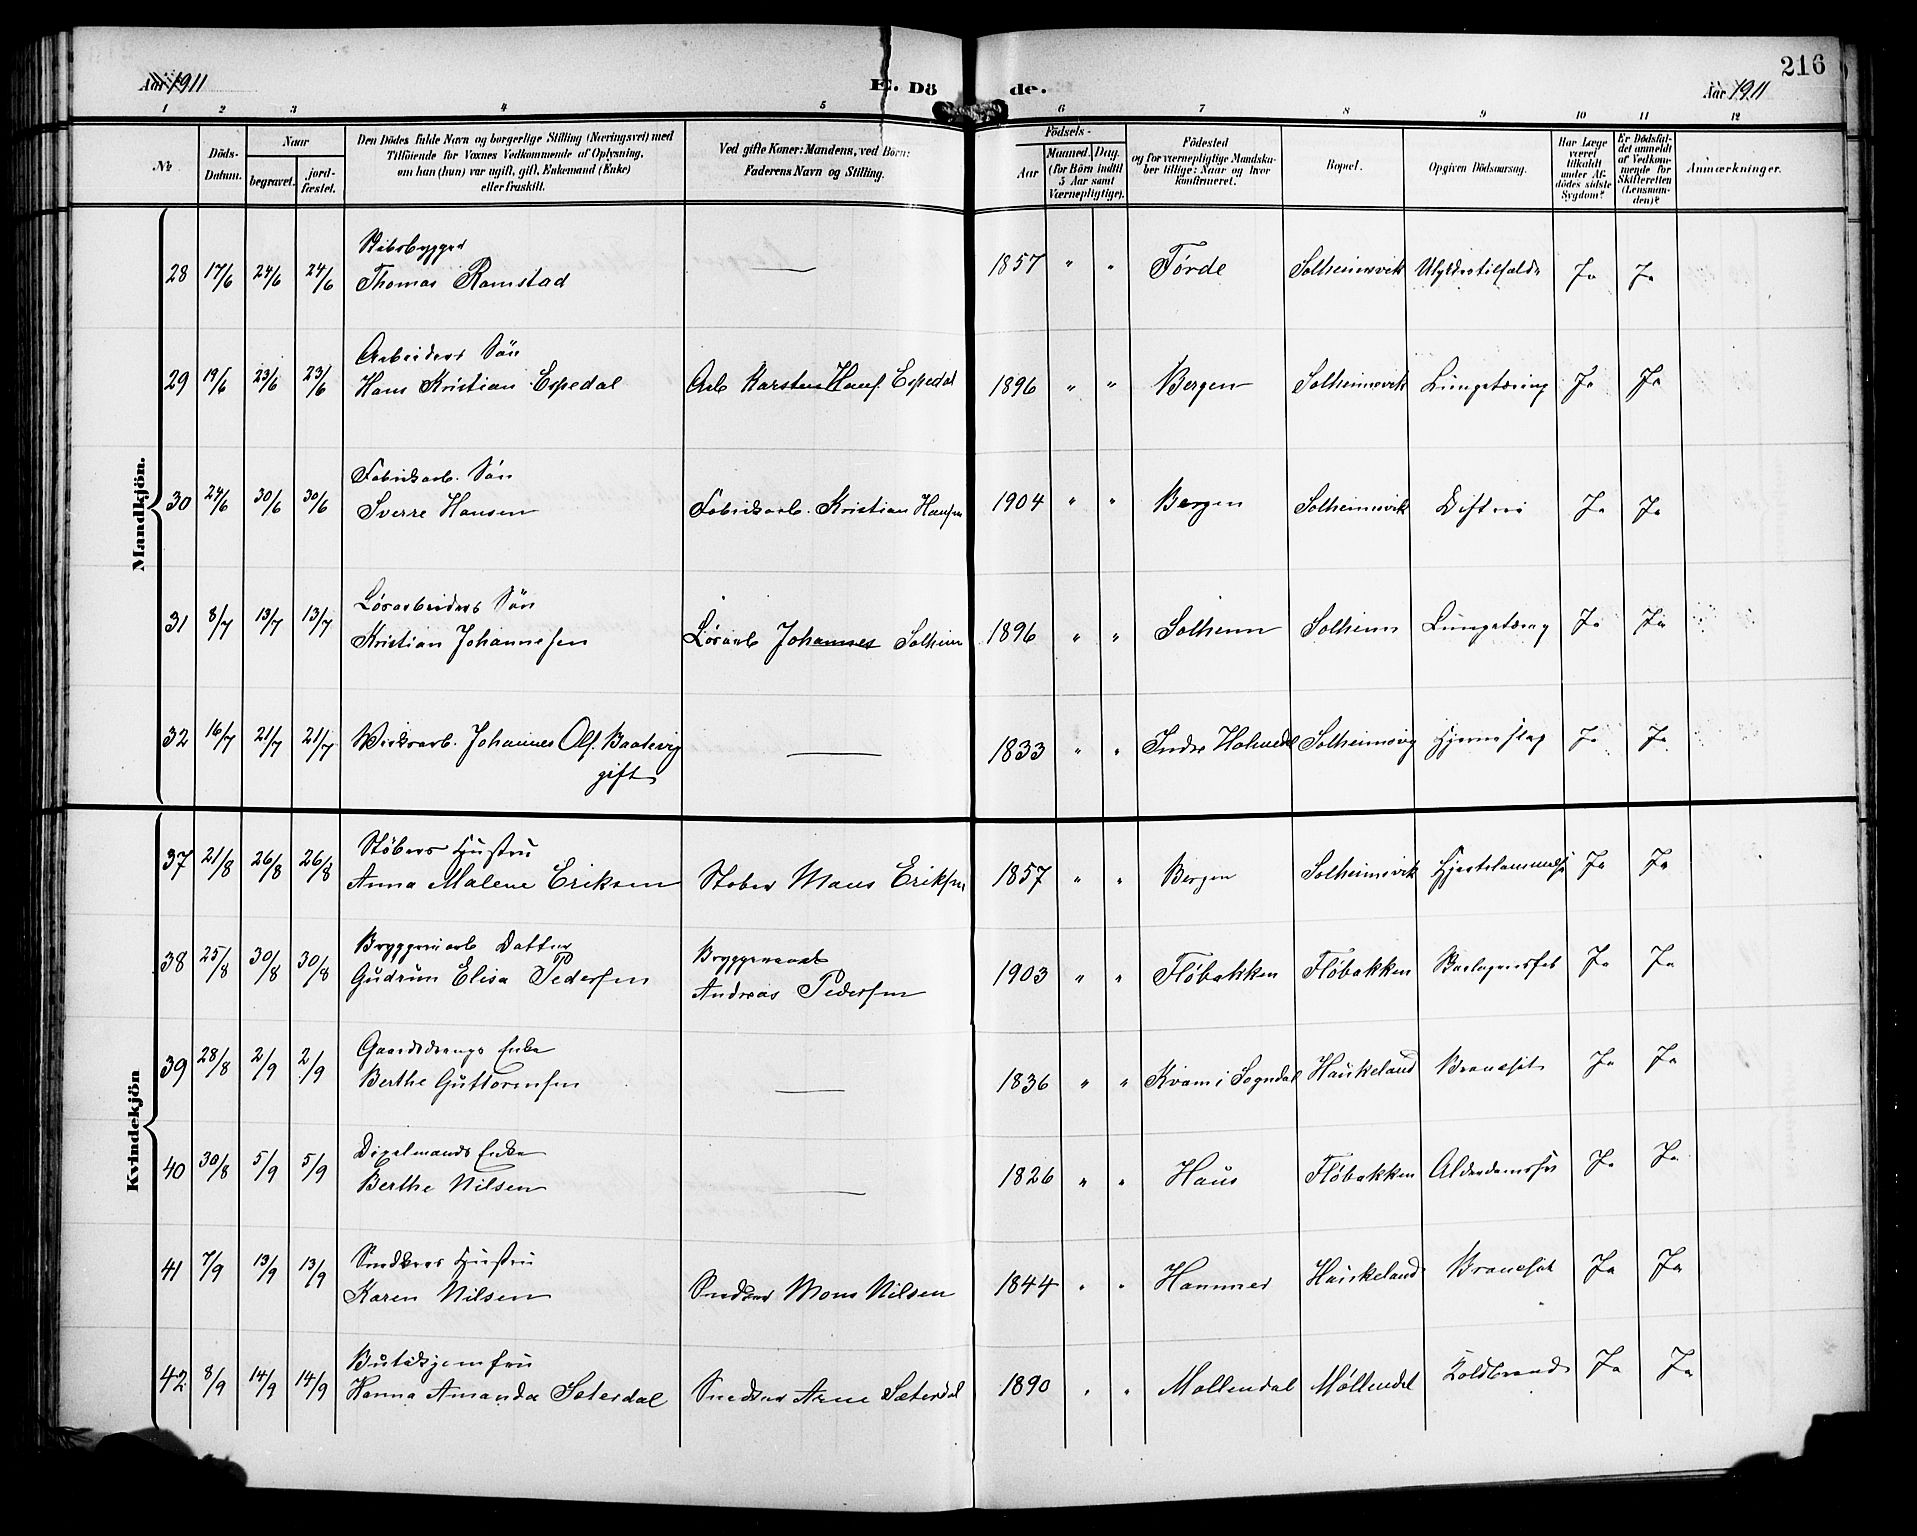 216
Aar 1911
E. Dö de.
Aar 1911
1 2 3 4 5 6 7 8 9 10 11 12
No
Döds-Datum.
Naar
begravet.
jord-fæstet.
Den Dödes fulde Navn og borgerlige Stilling (Næringsvei) med
Tilföiende for Voxnes Vedkommende af Oplysning,
om han (hun) var ugift, gift, Enkemand (Enke)
eller fraskilt.
Ved gifte Koner: Mandens, ved Börn:
Faderens Navn og Stilling.
Födsels-
Aar
Maaned. Dag.
(for Börn indtil
5 Aar samt
Værnepligtige).
Födested
og for værnepligtige Mandska-
ber tillige: Naar og hvor
konfirmeret.
Bopæl.
Opgiven Dödsaarsag.
Har Læge
været
tilkaldt
under Af-
dödes sidste
Sygdom?
Er Dödsfal-
det anmeldt
af Vedkom-
mende for
Skifteretten
(Lensman-
den)?
Anmærkninger.
Mandkjön.
Skibsbygger
28 17/6 24/6 24/6 Thomas Ramstad — 1857 " " Førde Solheimsvik Ulykkestilfælde Ja Ja
Arbeiders Søn
29 19/6 23/6 23/6 Hans Kristian Espedal Arb Karsten Hans Espedal 1896 " " Bergen Solheimsvik Lungetæring Ja Ja
Fabrikarb. Søn
30 24/6 30/6 30/6 Sverre Hansen Fabrikarb. Kristian Hansen 1904 " " Bergen Solheimsvik Difteri Ja Ja
Løsarbeiders Søn
31 8/7 13/7 13/7 Kristian Johannesen Løsarb Johannes Solheim 1896 " " Solheim Solheim Lungetæring Ja Ja
32 16/7 21/7 21/7 Johannes Ols. Baatevig — 1833 " " Indre Holmedal Solheimsvig Hjerneslag Ja Ja
gift
Kvindekjön
Støbers Hustru
37 21/8 26/8 26/8 Anna Malene Eriksen Støber Mons Eriksen 1857 " " Bergen Solheimsvik Hjertelammelse Ja Ja
Bryggeriarb Datter Bryggeriarb
38 25/8 30/8 30/8 Gudrun Elisa Pedersen Andreas Pedersen 1903 " " Fløbakken Fløbakken Ja Ja
Gaardsdrengs Enke
39 28/8 2/9 2/9 Berthe Guttormsen — 1836 " " Kvam i Sogndal Haukeland Ja Ja
Enke
40 30/8 5/9 5/9 Berthe Nilsen — 1826 " " Haus Fløbakken Alderdomssv Ja Ja
Snedkers Hustru
41 7/9 13/9 13/9 Karen Nilsen Snedker Mons Nilsen 1844 " " Hammer Haukeland Ja Ja
Butikjomfru
42 8/9 14/9 14/9 Hanna Amanda Sæterdal Snedker Arne Sæterdal 1890 " " Møllendal Møllendal Koldbrand Ja Ja